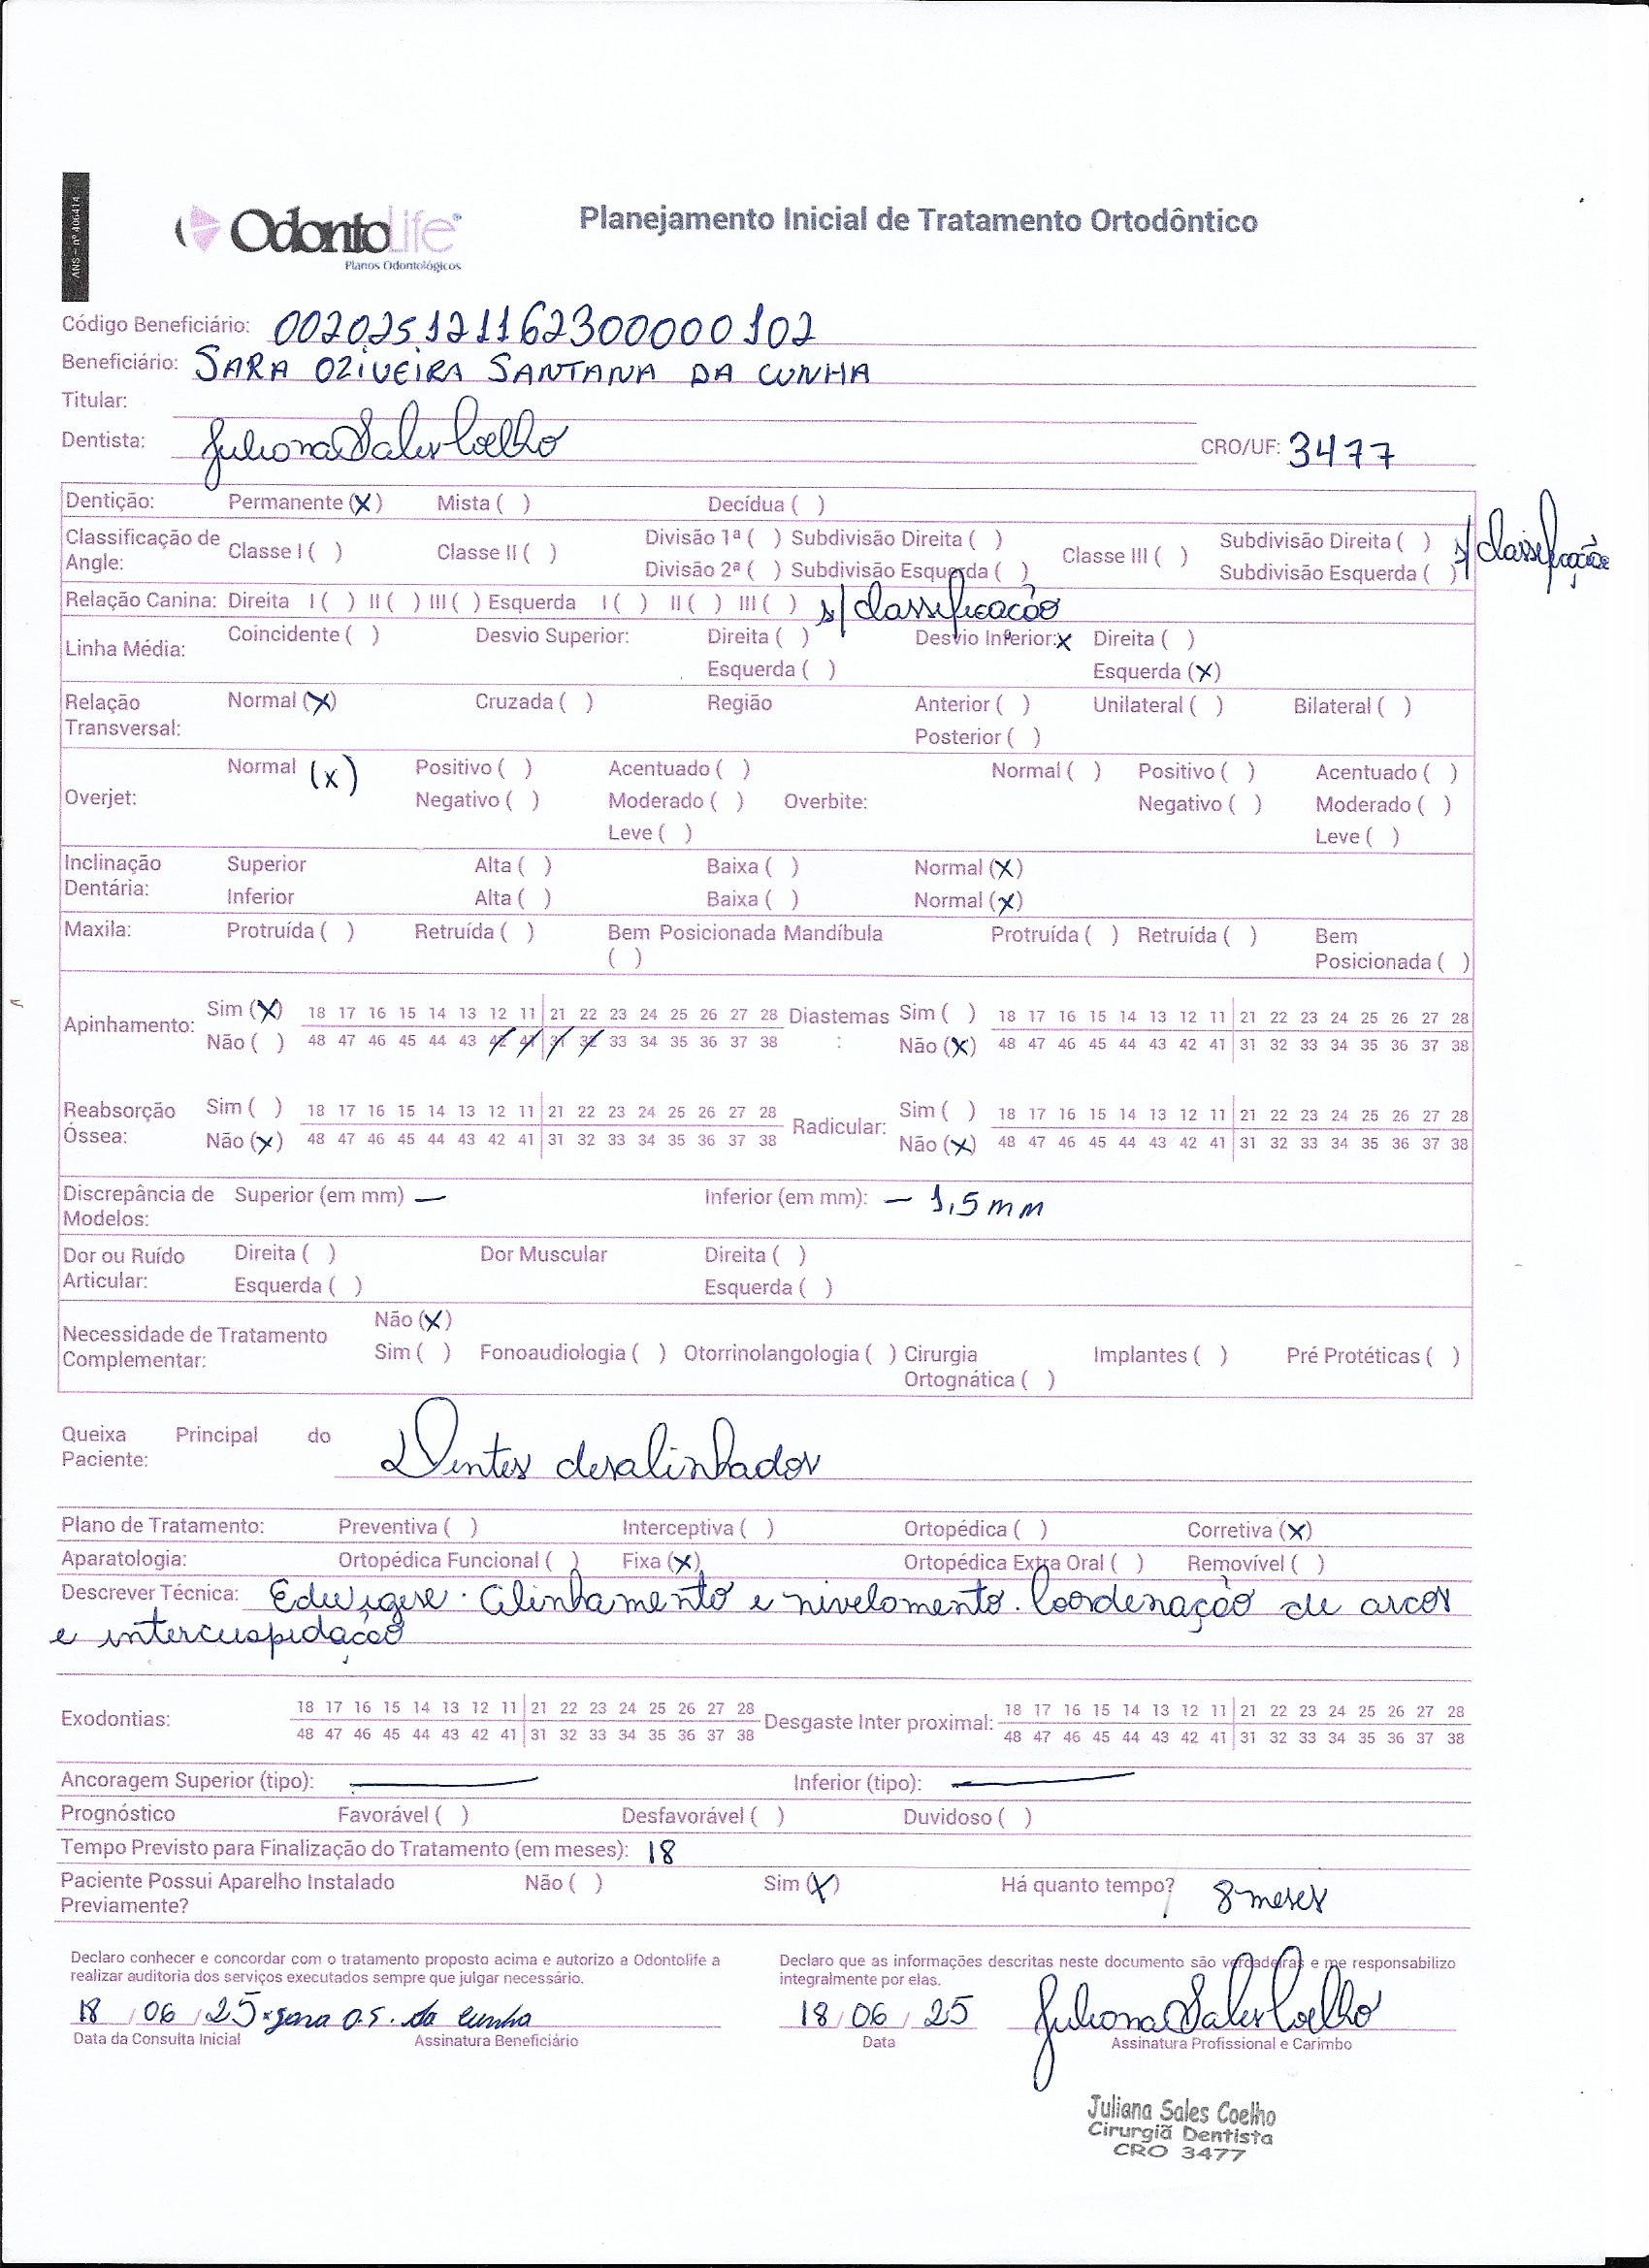 ANS - nº 406414
OdontoLife®
Planos Odontológicos
Planejamento Inicial de Tratamento Ortodôntico
Código Beneficiário: 00202512116230000102
Beneficiário: SARA OZIVEIRA SANTANA DA CUNHA
Titular:
Dentista: Juliana Sales Coelho CRO/UF: 3477
Dentição: Permanente (X) Mista ( ) Decídua ( )
Classificação de Angle: Classe I ( ) Classe II ( ) Divisão 1ª ( ) Subdivisão Direita ( ) Classe III ( ) Subdivisão Direita ( ) s/ classificação
Divisão 2ª ( ) Subdivisão Esquerda ( ) Subdivisão Esquerda ( )
Relação Canina: Direita I ( ) II ( ) III ( ) Esquerda I ( ) II ( ) III ( ) s/ classificação
Linha Média: Coincidente ( ) Desvio Superior: Direita ( ) Desvio Inferior: X Direita ( )
Esquerda ( ) Esquerda (X)
Relação Transversal: Normal (X) Cruzada ( ) Região Anterior ( ) Unilateral ( ) Bilateral ( )
Posterior ( )
Overjet: Normal (X) Positivo ( ) Acentuado ( ) Overbite: Normal ( ) Positivo ( ) Acentuado ( )
Negativo ( ) Moderado ( ) Negativo ( ) Moderado ( )
Leve ( ) Leve ( )
Inclinação Dentária: Superior Alta ( ) Baixa ( ) Normal (X)
Inferior Alta ( ) Baixa ( ) Normal (X)
Maxila: Protruída ( ) Retruída ( ) Bem Posicionada ( ) Mandíbula Protruída ( ) Retruída ( ) Bem Posicionada ( )
Apinhamento: Sim (X) 18 17 16 15 14 13 12 11 21 22 23 24 25 26 27 28 Diastemas : Sim ( ) 18 17 16 15 14 13 12 11 21 22 23 24 25 26 27 28
Não ( ) 48 47 46 45 44 43 42 41 31 32 33 34 35 36 37 38 Não (X) 48 47 46 45 44 43 42 41 31 32 33 34 35 36 37 38
Reabsorção Óssea: Sim ( ) 18 17 16 15 14 13 12 11 21 22 23 24 25 26 27 28 Radicular: Sim ( ) 18 17 16 15 14 13 12 11 21 22 23 24 25 26 27 28
Não (X) 48 47 46 45 44 43 42 41 31 32 33 34 35 36 37 38 Não (X) 48 47 46 45 44 43 42 41 31 32 33 34 35 36 37 38
Discrepância de Modelos: Superior (em mm) — Inferior (em mm): — 1,5 mm
Dor ou Ruído Articular: Direita ( ) Dor Muscular Direita ( )
Esquerda ( ) Esquerda ( )
Necessidade de Tratamento Complementar: Não (X)
Sim ( ) Fonoaudiologia ( ) Otorrinolangologia ( ) Cirurgia Ortognática ( ) Implantes ( ) Pré Protéticas ( )
Queixa Principal do Paciente: Dentes desalinhados
Plano de Tratamento: Preventiva ( ) Interceptiva ( ) Ortopédica ( ) Corretiva (X)
Aparatologia: Ortopédica Funcional ( ) Fixa (X) Ortopédica Extra Oral ( ) Removível ( )
Descrever Técnica: Edwigese. Alinhamento e nivelamento. Coordenação de arcos
e intercuspidação
Exodontias: 18 17 16 15 14 13 12 11 21 22 23 24 25 26 27 28 Desgaste Inter proximal: 18 17 16 15 14 13 12 11 21 22 23 24 25 26 27 28
48 47 46 45 44 43 42 41 31 32 33 34 35 36 37 38 48 47 46 45 44 43 42 41 31 32 33 34 35 36 37 38
Ancoragem Superior (tipo): — Inferior (tipo): —
Prognóstico Favorável ( ) Desfavorável ( ) Duvidoso ( )
Tempo Previsto para Finalização do Tratamento (em meses): 18
Paciente Possui Aparelho Instalado Previamente? Não ( ) Sim (X) Há quanto tempo? 8 meses
Declaro conhecer e concordar com o tratamento proposto acima e autorizo a Odontolife a
realizar auditoria dos serviços executados sempre que julgar necessário.
Declaro que as informações descritas neste documento são verdadeiras e me responsabilizo
integralmente por elas.
18 / 06 / 25 x sara O.S. da Cunha 18 / 06 / 25 Juliana Sales Coelho
Data da Consulta Inicial Assinatura Beneficiário Data Assinatura Profissional e Carimbo
Juliana Sales Coelho
Cirurgiã Dentista
CRO 3477